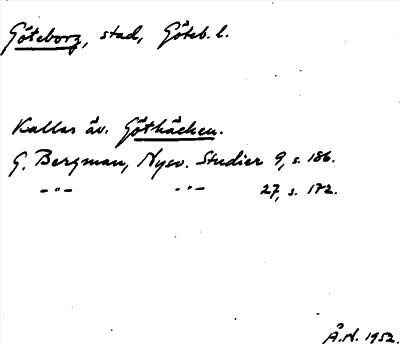 Göteborg, stad, Göteb. l.
Kallas äv. Götkäcken.
G. Bergman, Nysv. Studier 9, s. 186.
–"– –"– 27, s. 172.
Å.N. 1952.